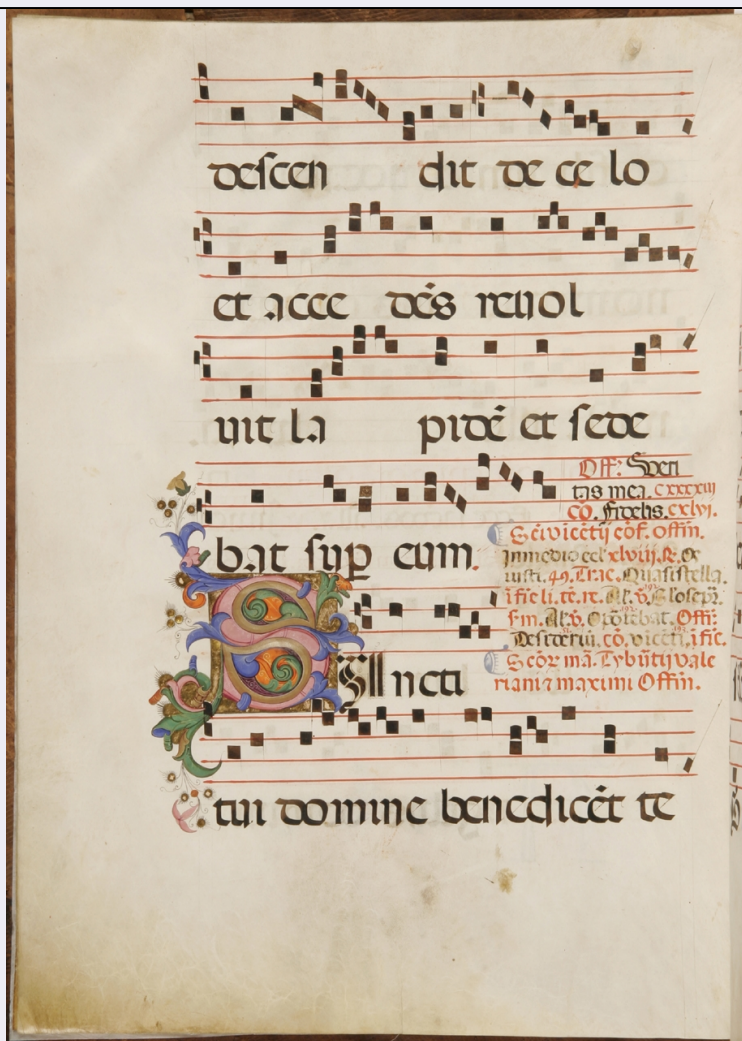 descen dit de ce lo
et acce dēs reuol
uit la pidē et sede
bat sup eum.
Off: Veri
tas mea. cxxxxiii
cō. fidelis. cxlvi.
S. cī vicētij cōf. offm.
In medio eccl. xlviii. R. Os
iusti. 49. Trac. Quasi stella.
Al. v.
fm. Al. v. Oportebat. Offi:
cō. vicēti. i fie.
S cōr mā. Tyburtij vale
riani maximi Offm.
Sancti
tui domine benedicēt te